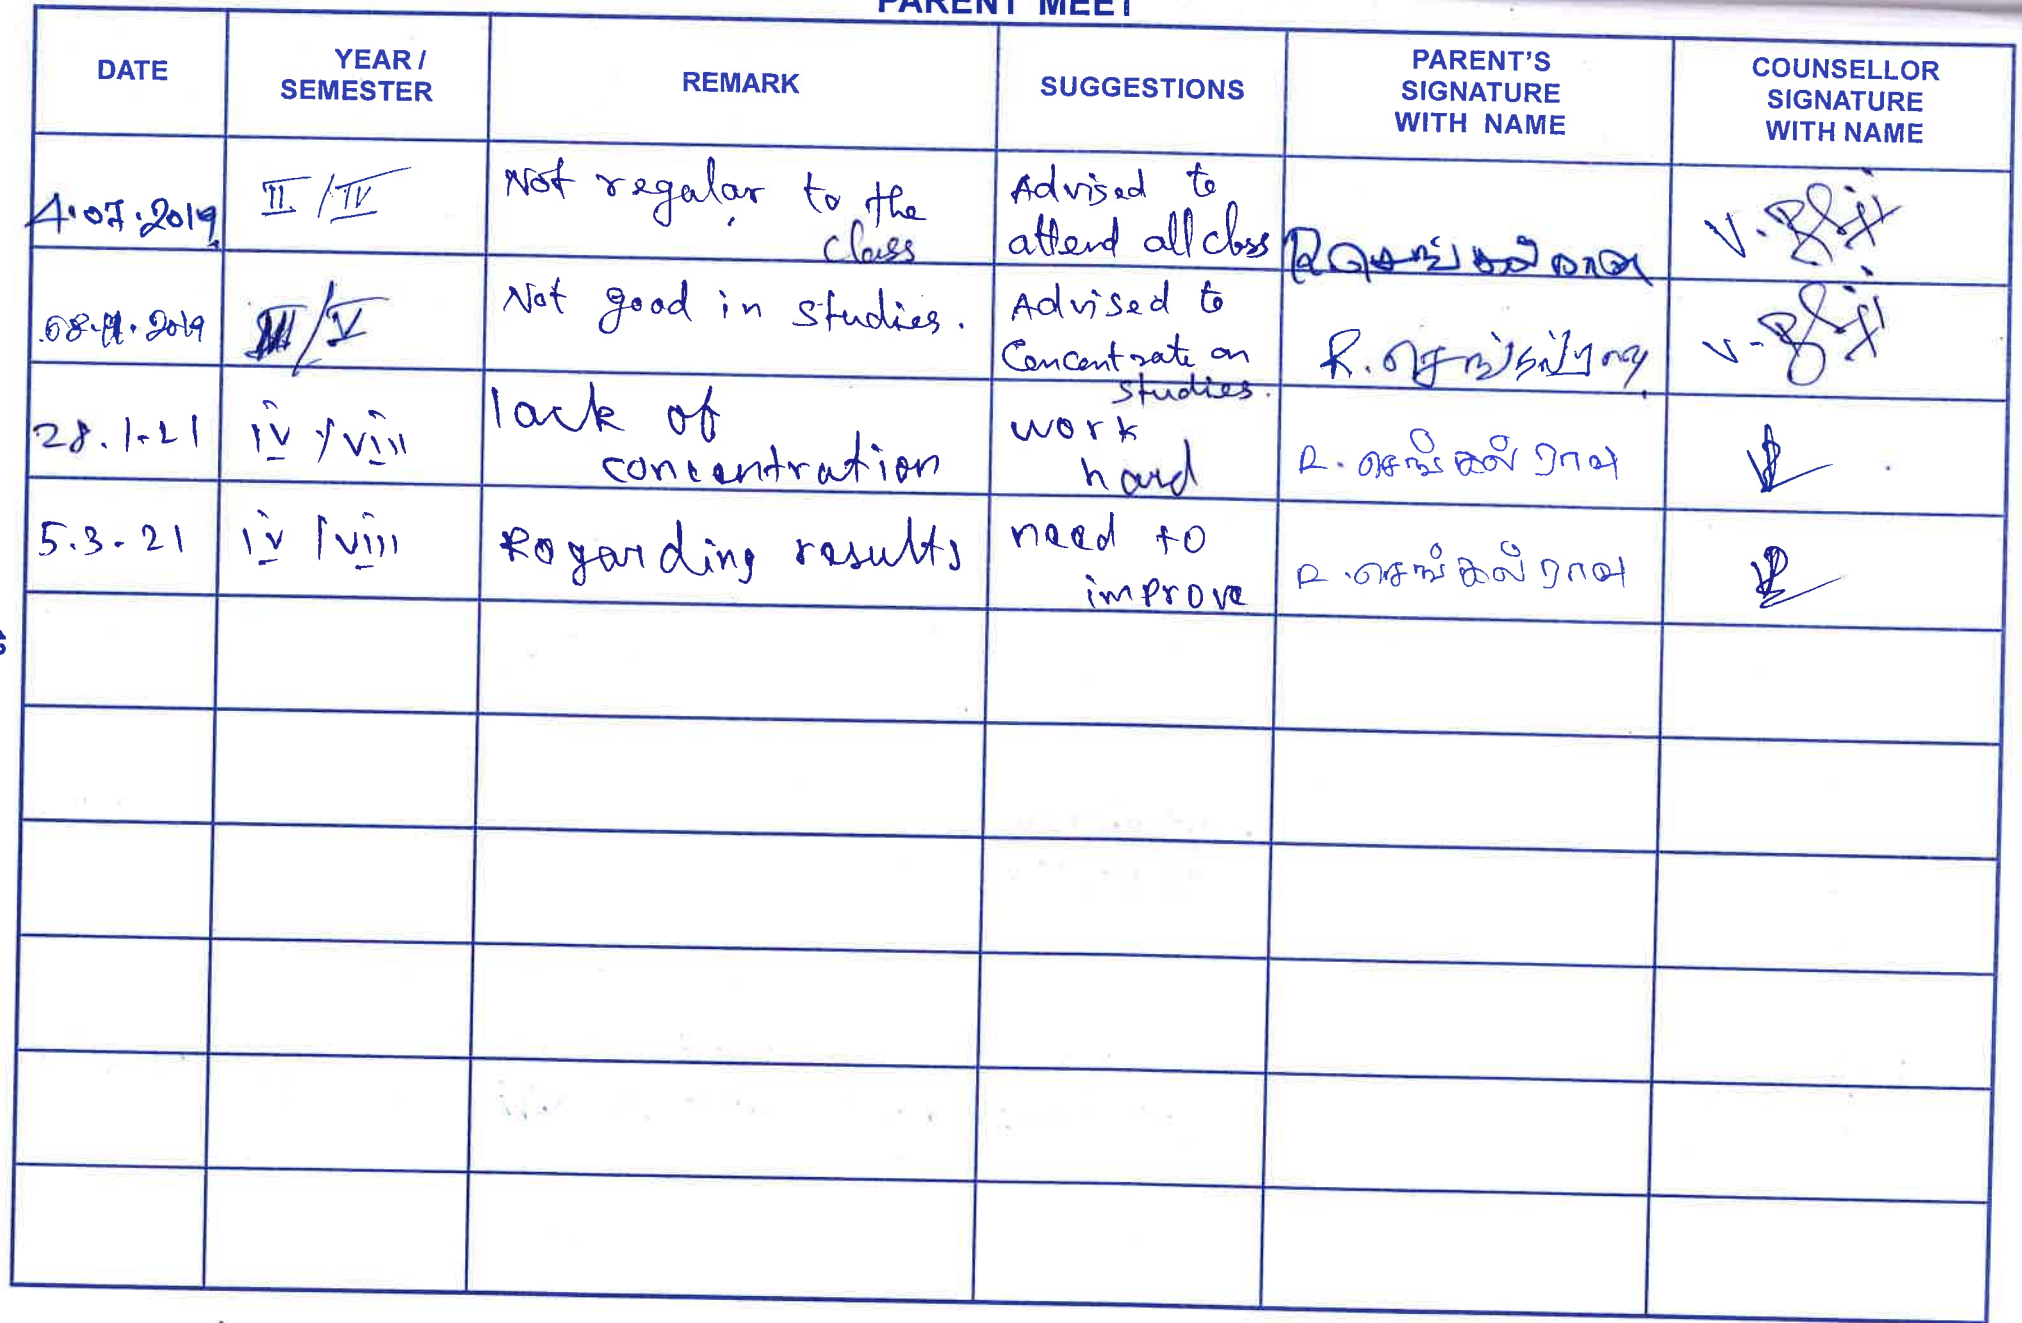 PARENT MEET
DATE
YEAR /
SEMESTER
REMARK
SUGGESTIONS
PARENT'S
SIGNATURE
WITH NAME
COUNSELLOR
SIGNATURE
WITH NAME
4.07.2019
II / IV
Not regular to the
class
Advised to
attend all class
2019
III/V
Not good in studies.
Advised to
Concentrate on
studies.
R. செங்கல்ராவ
28.1.21
iv / viii
lack of
concentration
work
hard
R. செங்கல் ராவ
5.3.21
iv / viii
Regarding results
need to
improve
R. செங்கல் ராவ